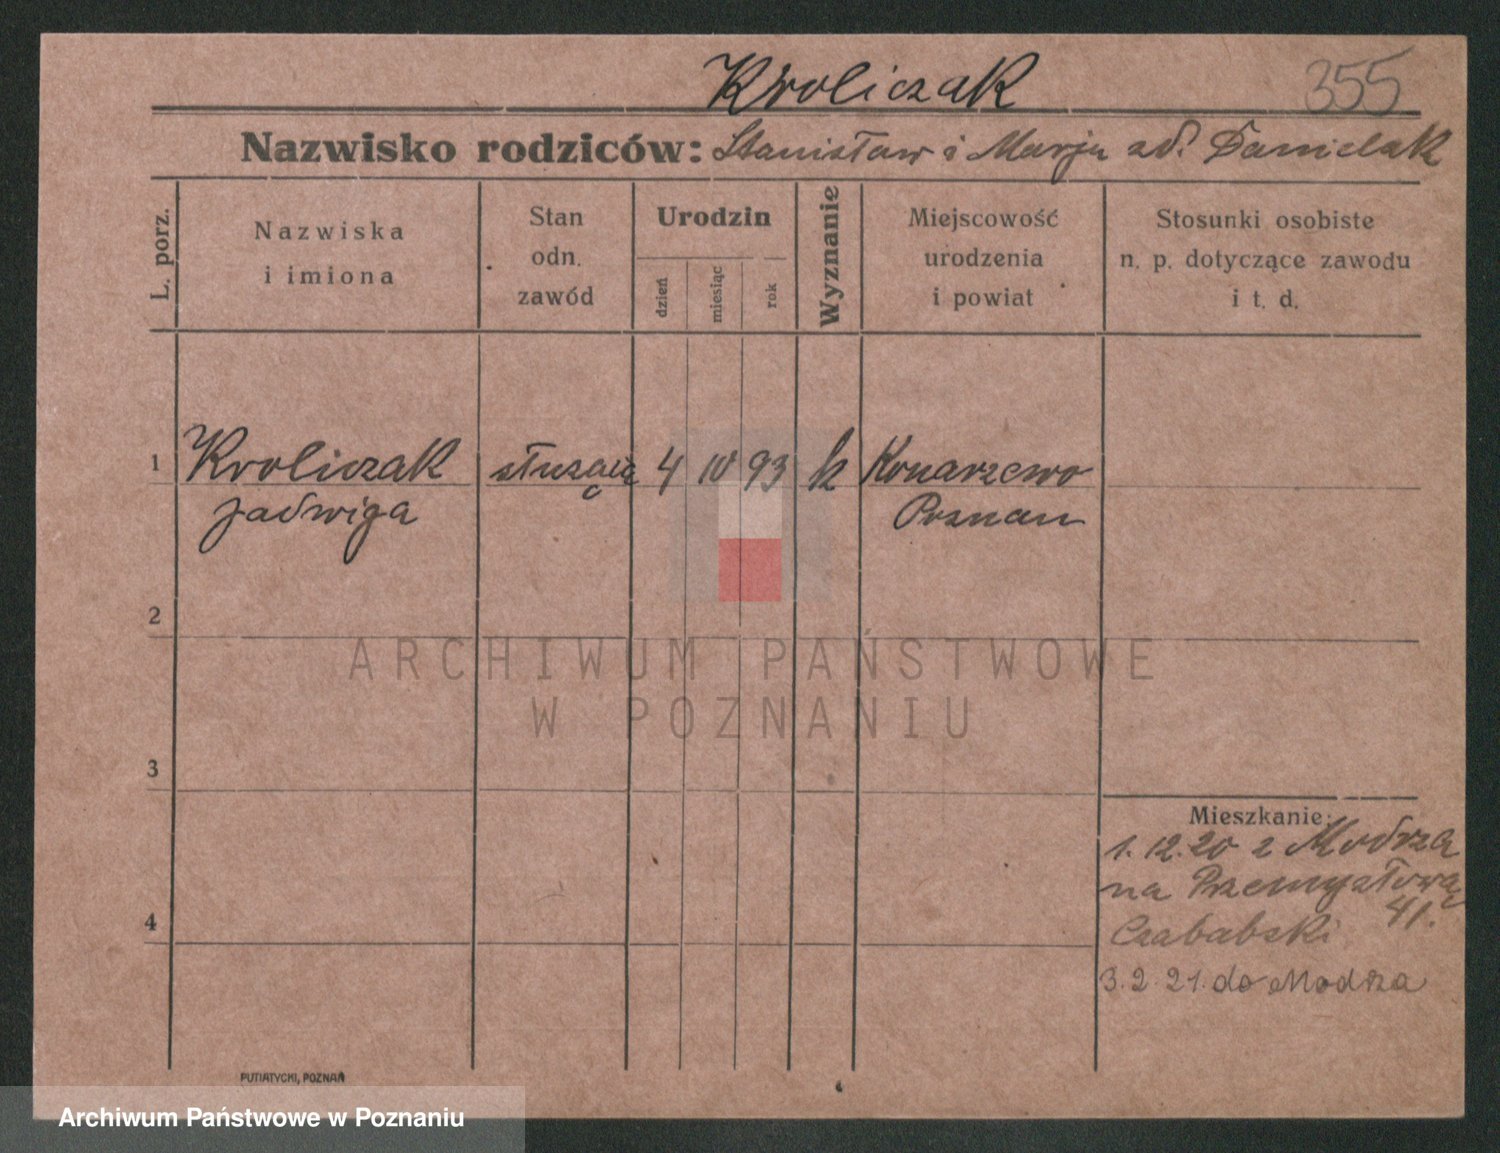 Kroliczak 355
Nazwisko rodziców: Stanisław i Marja zd. Danielak
L. porz.
Nazwiska
i imiona
Stan
odn.
zawód
Urodzin
dzień
miesiąc
rok
Wyznanie
Miejscowość
urodzenia
i powiat
Stosunki osobiste
n. p. dotyczące zawodu
i t. d.
1 Kroliczak służąca 4 IV 93 k Konarzewo
Jadwiga Poznan
2
3
4
Mieszkanie:
1.12.20 z Modrza
na Przemysłową
41.
3.2.21. do Modrza
PUTIATYCKI, POZNAŃ
ARCHIWUM PAŃSTWOWE
W POZNANIU
Archiwum Państwowe w Poznaniu